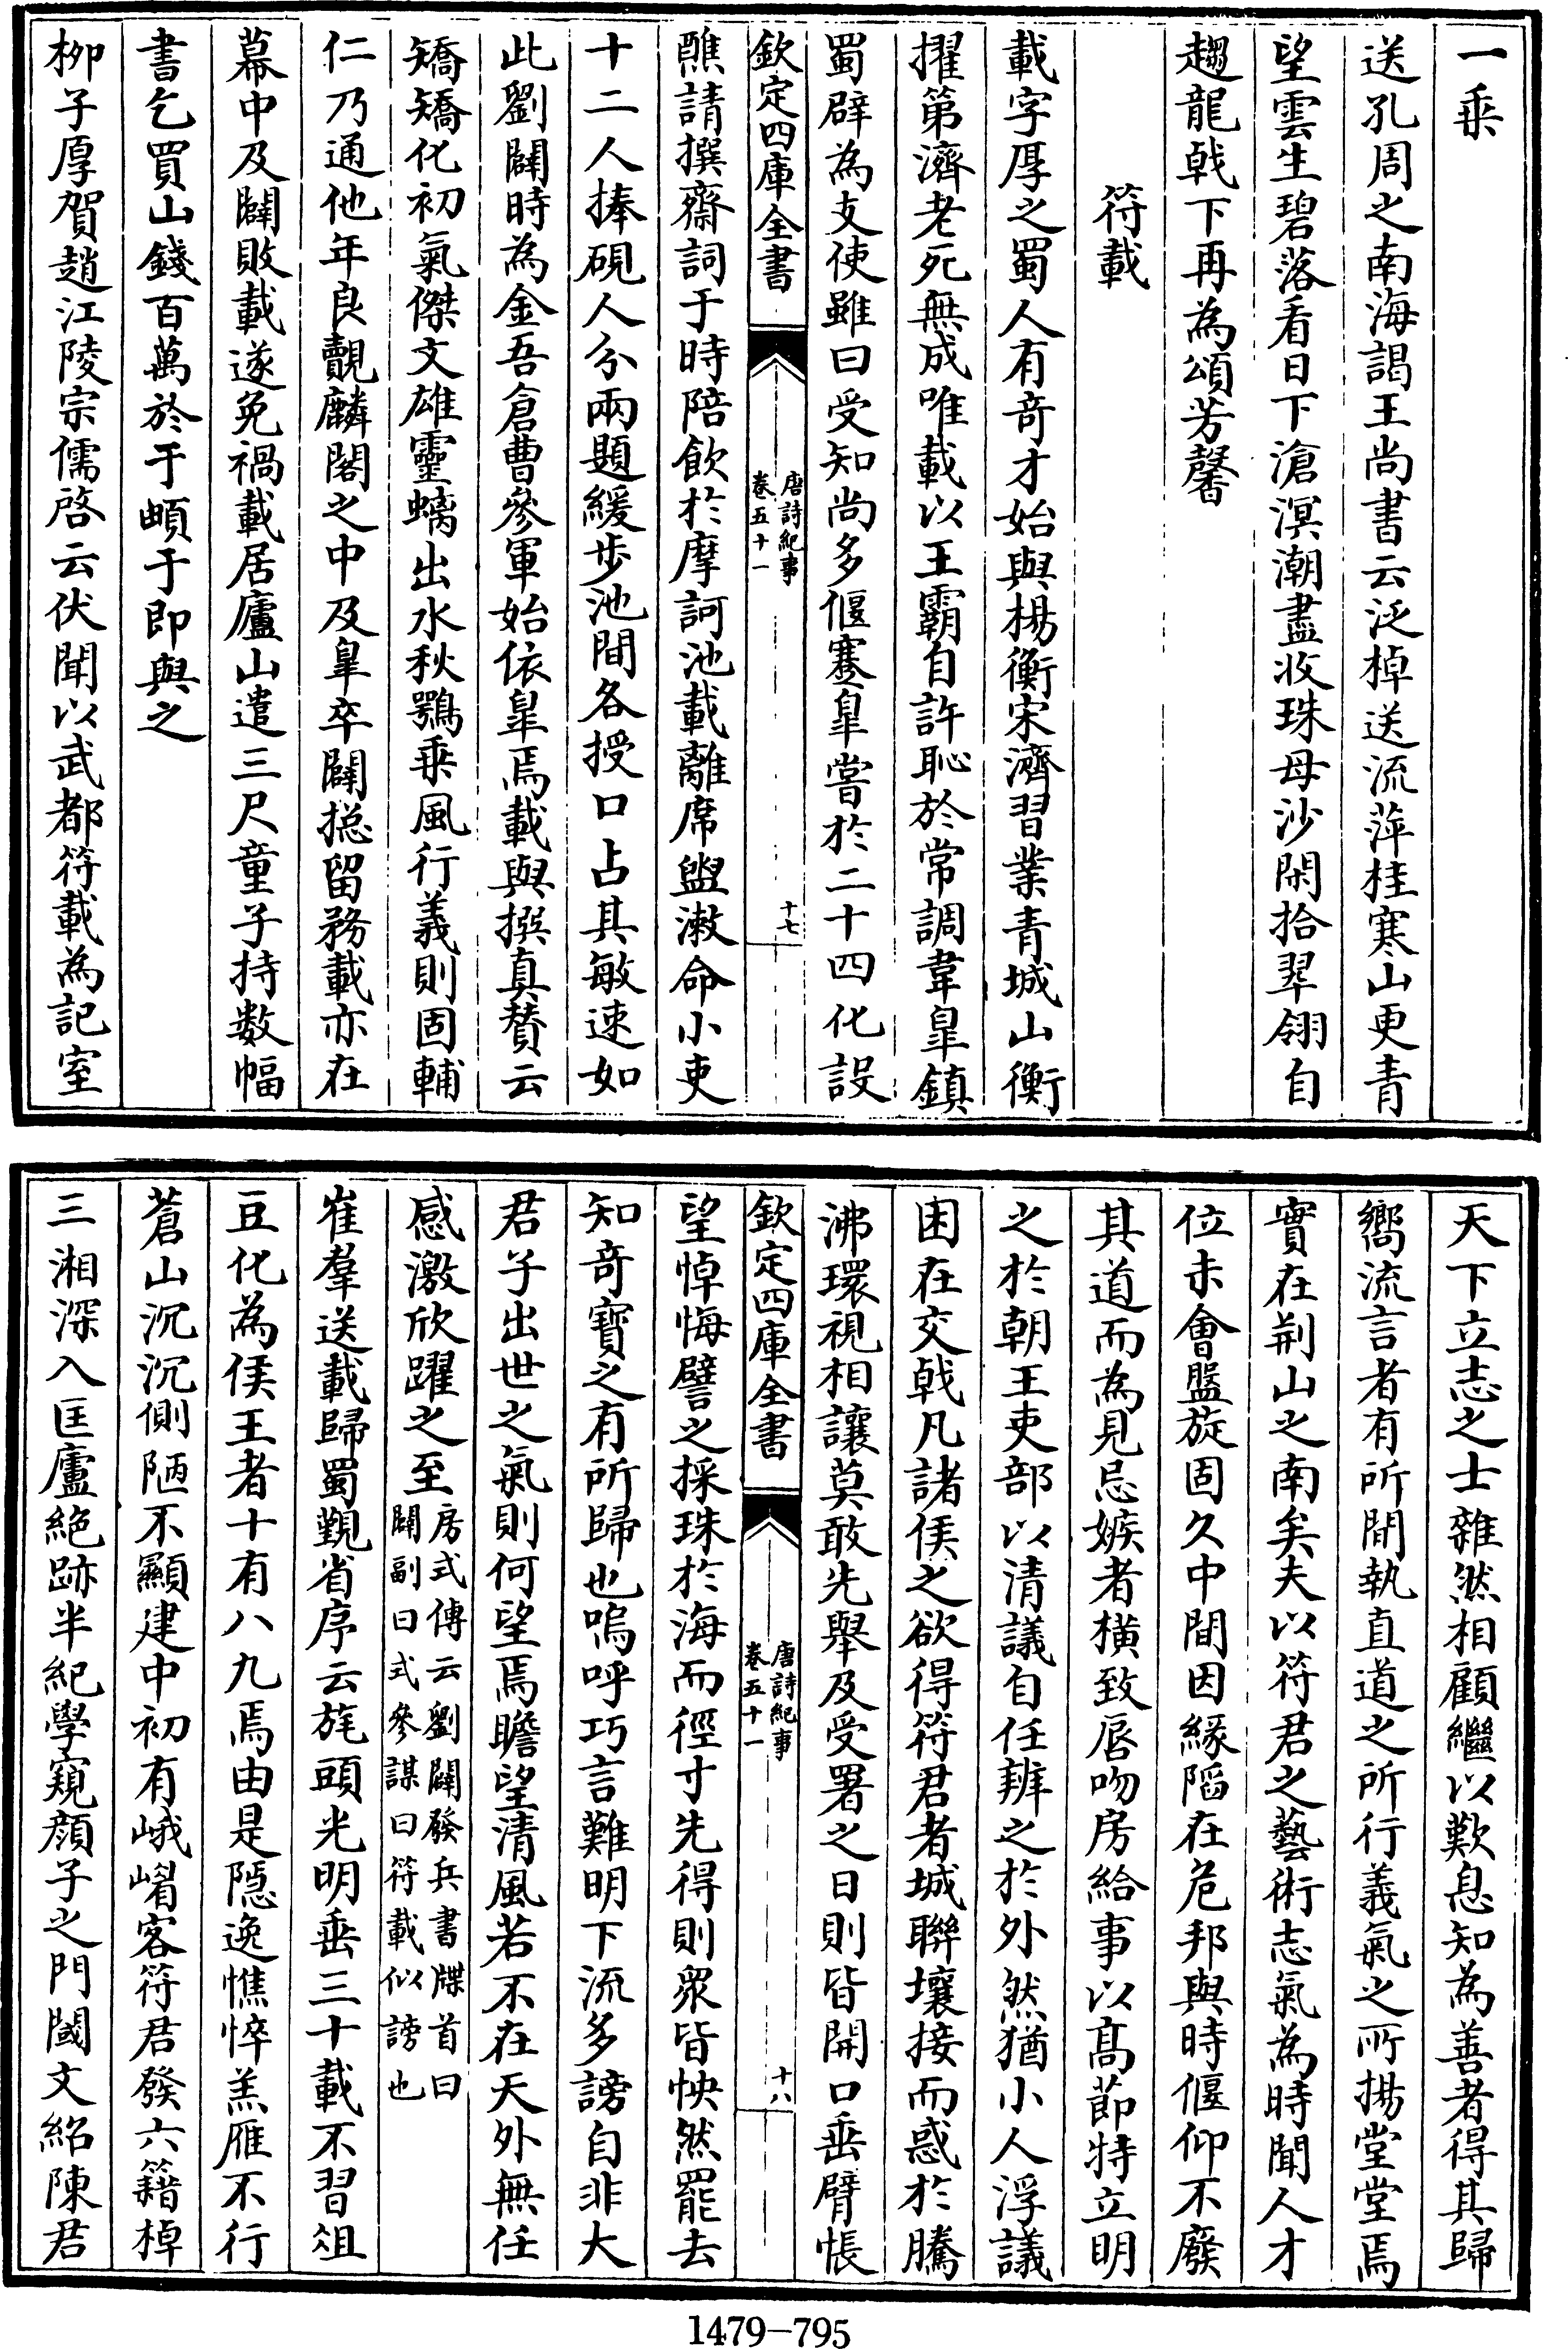 一乗
送孔周之南海謁王尚書云泛棹送流萍桂寒山更青
望雲生碧落看日下滄溟潮盡收珠母沙閑拾翠翎自
趨龍戟下再為頌芳馨
符載
載字厚之蜀人有奇才始與楊衡宋濟習業青城山衡
擢第濟老死無成唯載以王霸自許恥於常調韋臯鎮
蜀辟為支使雖曰受知尚多偃蹇臯嘗於二十四化設
欽定四庫全書
唐詩紀事
卷五十一
十七
醮請撰齋詞于時陪飲於摩訶池載離席盥漱命小吏
十二人捧硯人分兩題緩步池間各授口占其敏速如
此劉闢時為金吾倉曹參軍始依臯焉載與撰真賛云
矯矯化初氣傑文雄靈螭出水秋鶚乗風行義則固輔
仁乃通他年良覿麟閣之中及臯卒闢揔留務載亦在
幕中及闢敗載遂免禍載居廬山遣三尺童子持數幅
書乞買山錢百萬於于頔于即與之
栁子厚賀趙江陵宗儒啓云伏聞以武都符載為記室
天下立志之士雜然相顧繼以歎息知為善者得其歸
嚮流言者有所間執直道之所行義氣之所揚堂堂焉
實在荆山之南矣夫以符君之藝術志氣為時聞人才
位未會盤旋固久中間因緣陷在危邦與時偃仰不廢
其道而為見忌嫉者橫致唇吻房給事以髙節特立明
之於朝王吏部以清議自任辨之於外然猶小人浮議
困在交戟凡諸侯之欲得符君者城聯壤接而惑於騰
沸環視相讓莫敢先舉及受署之日則皆開口垂臂悵
欽定四庫全書
唐詩紀事
卷五十一
十八
望悼悔譬之採珠於海而徑寸先得則衆皆怏然罷去
知奇寶之有所歸也嗚呼巧言難明下流多謗自非大
君子出世之氣則何望焉瞻望清風若不在天外無任
感激欣躍之至
房式傳云劉闢發兵書牒首曰
闢副曰式參謀曰符載似謗也
崔羣送載歸蜀覲省序云旄頭光明垂三十載不習俎
豆化為侯王者十有八九焉由是隠逸憔悴羔雁不行
蒼山沉沉側陋不顯建中初有峨嵋客符君發六籍棹
三湘深入匡廬絶跡半紀學窺顔子之門閾文紹陳君
1479-795